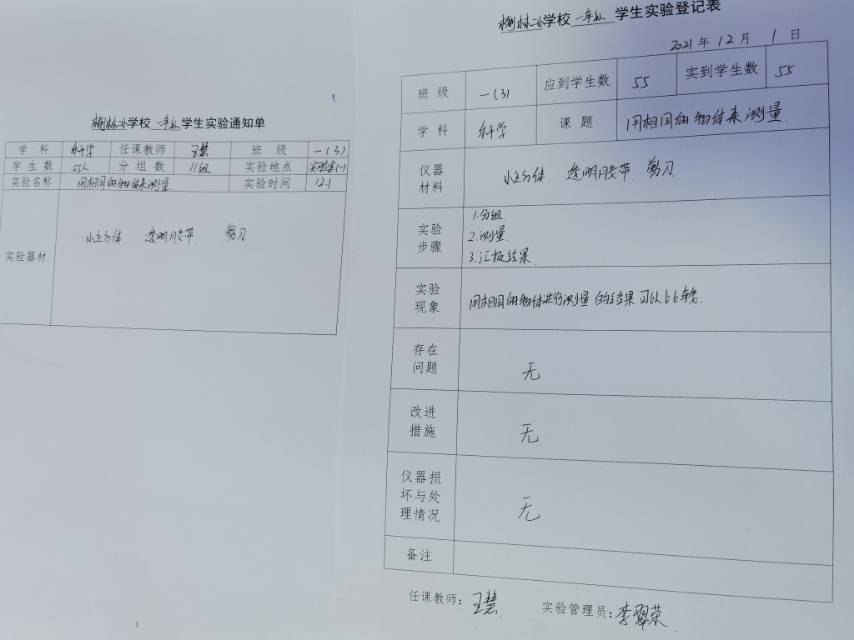 柳林二小学校 一年级 学生实验通知单
学科 科学 任课教师 王慧 班级 一(3)
学生数 55人 分组数 11组 实验地点 实验室(一)
实验名称 用相同的物体来测量 实验时间 12.1
实验器材 小立方体 透明胶带 剪刀
1
柳林二小学校 一年级 学生实验登记表
2021年12月1日
班级 一(3) 应到学生数 55 实到学生数 55
学科 科学 课题 用相同的物体来测量
仪器材料 小立方体 透明胶带 剪刀
实验步骤
1.分组
2.测量
3.汇报结果
实验现象 用相同的物体进行测量的结果可以比较.
存在问题 无
改进措施 无
仪器损坏与处理情况 无
备注
任课教师:王慧 实验管理员:李翠荣